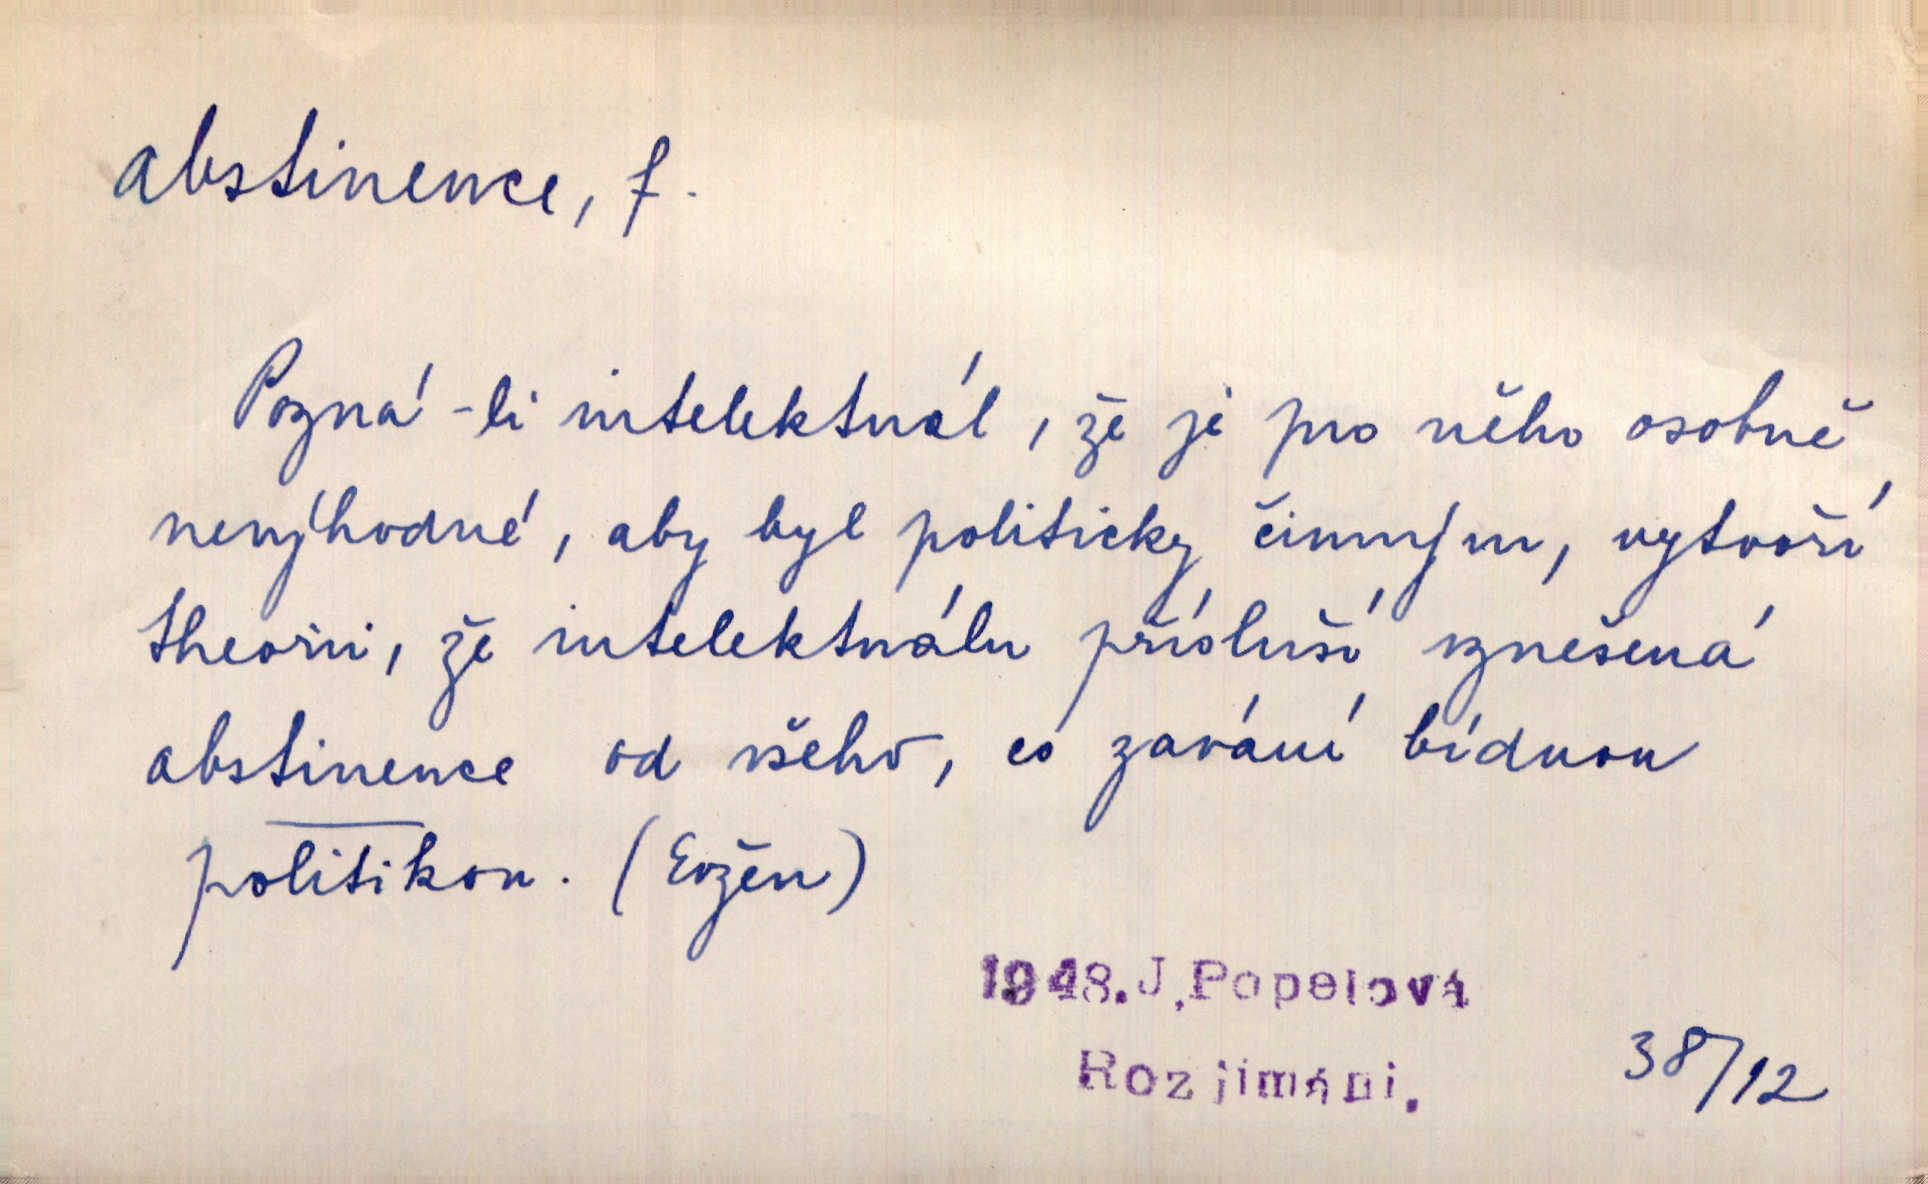 abstinence, f.
Pozná-li intelektuál, že je pro něho osobně
nevýhodné, aby byl politicky činným, vytvoří
theorii, že intelektuálu přísluší vznešená
abstinence od všeho, co zavání bídnou
politikou. (Evžen)
1948. J. Popelová
Rozjímání.
38/12